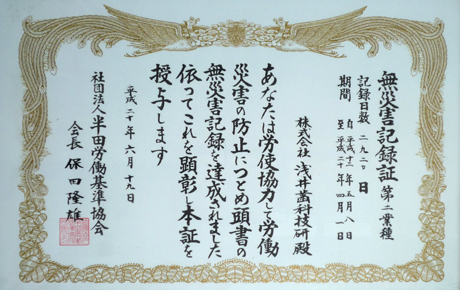 無災害記録証 第二業種
記録日数 二九二〇日
期間 自 平成十二年五月 日
至 平成二十年四月 日
株式会社 浅井歯科技研殿
あなたは労使協力して労働
災害の防止につとめ頭書の
無災害記録を達成されました
依ってこれを顕彰し本証を
授与します
平成二十年六月十九日
社団法人半田労働基準協会
会長 保田隆雄